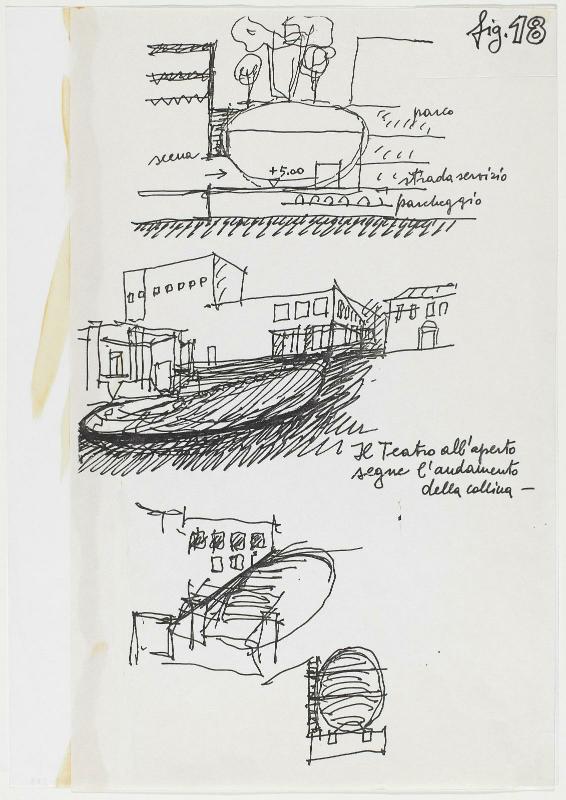 fig. 18
parco
scena
+5.00
strada servizio
parcheggio
Il Teatro all'aperto
segue l'andamento
della collina —